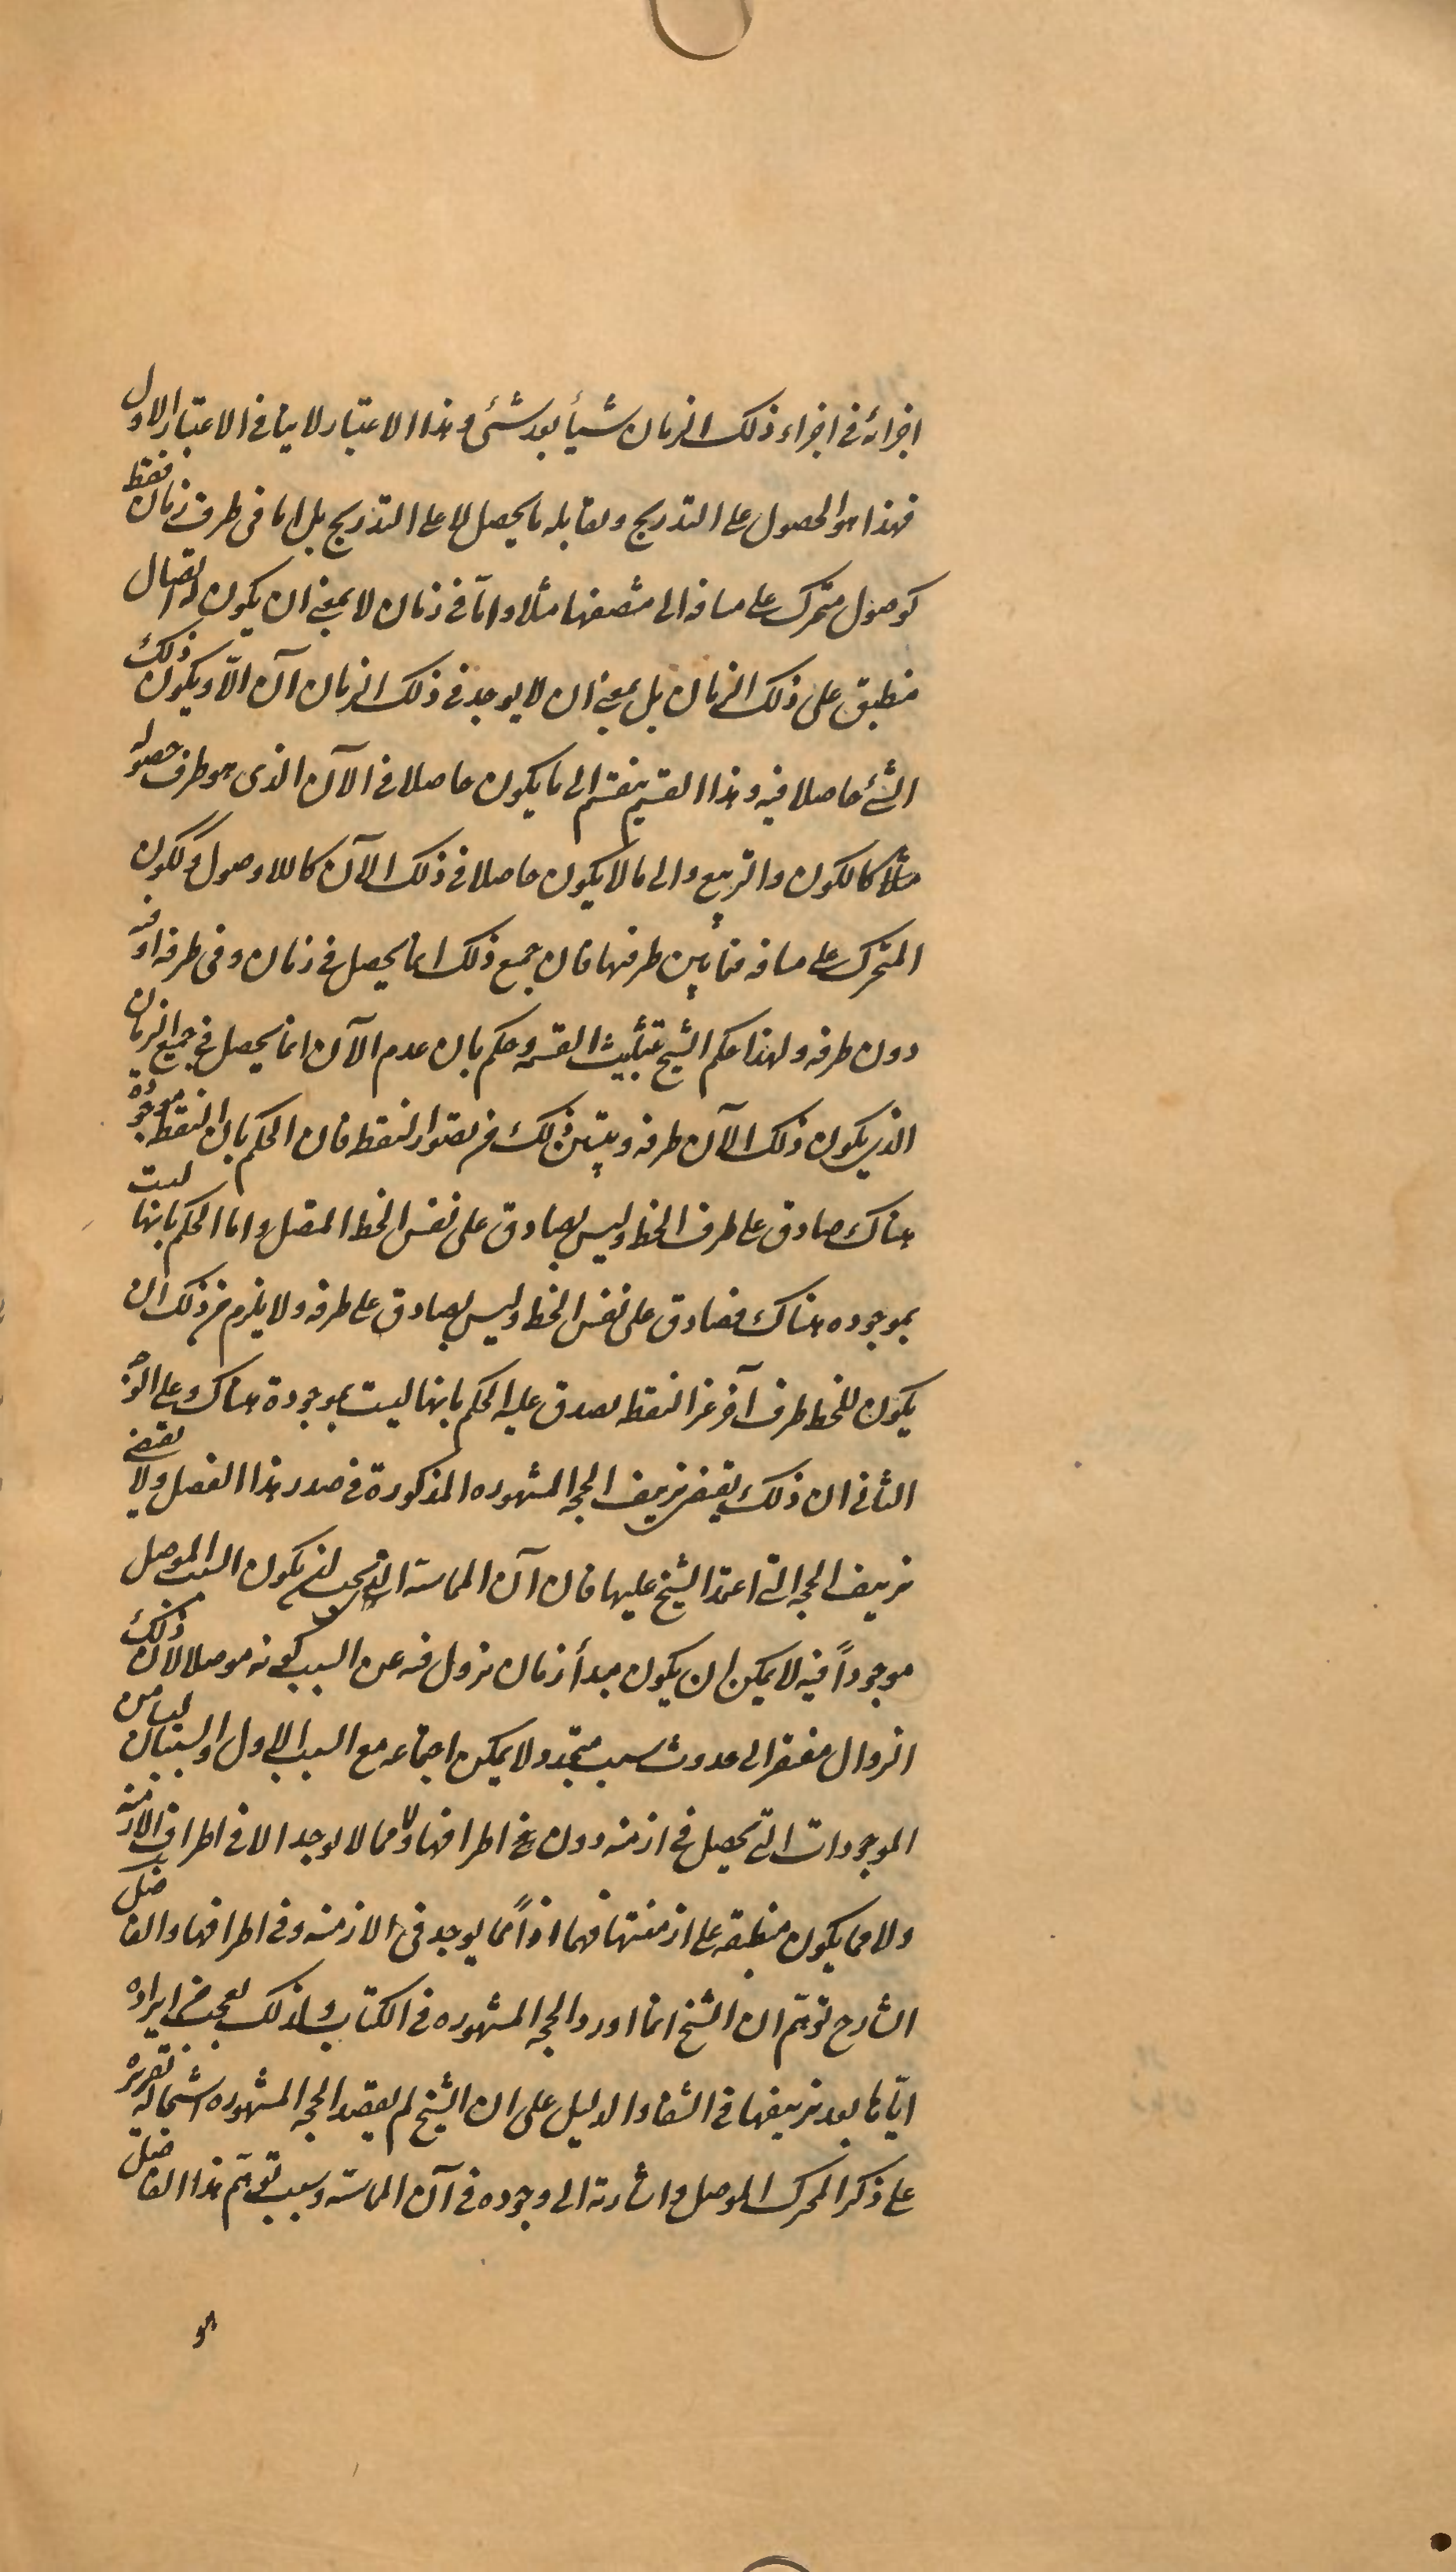 اجزائه فى اجزاء ذلك الزمان شيأ بعد شئ و هذا الاعتبار لا ينافى الاعتبار الاول
فهذا هو الحصول على التدريج و يقابله ما يحصل لا على التدريج بل اما فى طرف زمان فقط
كوصول متحرك على مسافه الى منتصفها مثلا و امّا فى زمان لا بمعنى ان يكون له اتصال
منطبق على ذلك الزمان بل بمعنى ان لا يوجد فى ذلك الزمان آن الّا و يكون ذلك
الشئ حاصلا فيه و هذا القسم ينقسم الى ما يكون حاصلا فى الآن الذى هو طرف حصوله
مثلا كالكون و التربيع و الى ما لا يكون حاصلا فى ذلك الآن كاللاوصول و ككون
المتحرك على مسافه فيما بين طرفيها فان جميع ذلك انما يحصل فى زمان و فى طرفه او فيه
دون طرفه و لهذا حكم الشيخ بتثليث القسمه و حكم بان عدم الآن انما يحصل فى جميع الزمان
الذى يكون ذلك الآن طرفه و يتبين ذلك من تصور النقطه فان الحكم بان النقطه موجوده
هناك صادق على طرف الخط و ليس بصادق على نفس الخط المتصل و اما الحكم بانها ليست
بموجوده هناك فصادق على نفس الخط و ليس بصادق على طرفه و لا يلزم من ذلك ان
يكون للخط طرف آخر غير النقطه يصدق عليه الحكم بانها ليست بموجودة هناك و على الوجه
الثانى ان ذلك يقتضى تزييف الحجه المشهوره المذكورة فى صدر هذا الفصل و لا يقتضى
تزييف الحجه التى اعتمد الشيخ عليها فان آن المماسة التى يجب ان يكون السبب الموصل
موجوداً فيه لا يمكن ان يكون مبدأ زمان يزول فيه عن السبب كونه موصلا لان ذلك
الزوال مفتقر الى حدوث سبب متجدد و لا يمكن اجتماعه مع السبب الاول و السببان ليسا من
الموجودات التى تحصل فى ازمنه دون اطرافها و لا مما لا يوجد الا فى اطراف الازمنه
و لا مما يكون منطبقه على ازمنتها فهما اذاً مما يوجد فى الازمنه و فى اطرافها و الفاضل
الشارح توهّم ان الشيخ انما اورد الحجه المشهوره فى الكتاب و لذلك تعجب من ايراده
ايّاها بعد تزييفها فى الشفا و الدليل على ان الشيخ لم يقصد الحجه المشهوره اشتمال تقريره
على ذكر المحرك الموصل و اشارته الى وجوده فى آن المماسّه و سبب توهّم هذا الفاضل
هو